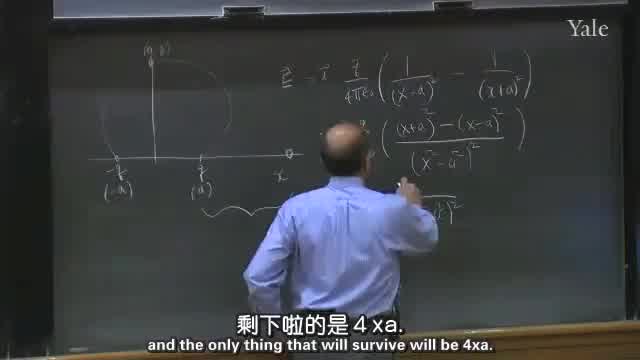 Yale
(0, y)
E = i q/4πε₀ ( 1/(x-a)² - 1/(x+a)² )
( (x+a)² - (x-a)² / (x² - a²)² )
x
(-a) (a)
剩下啦的是 4 xa.
and the only thing that will survive will be 4xa.